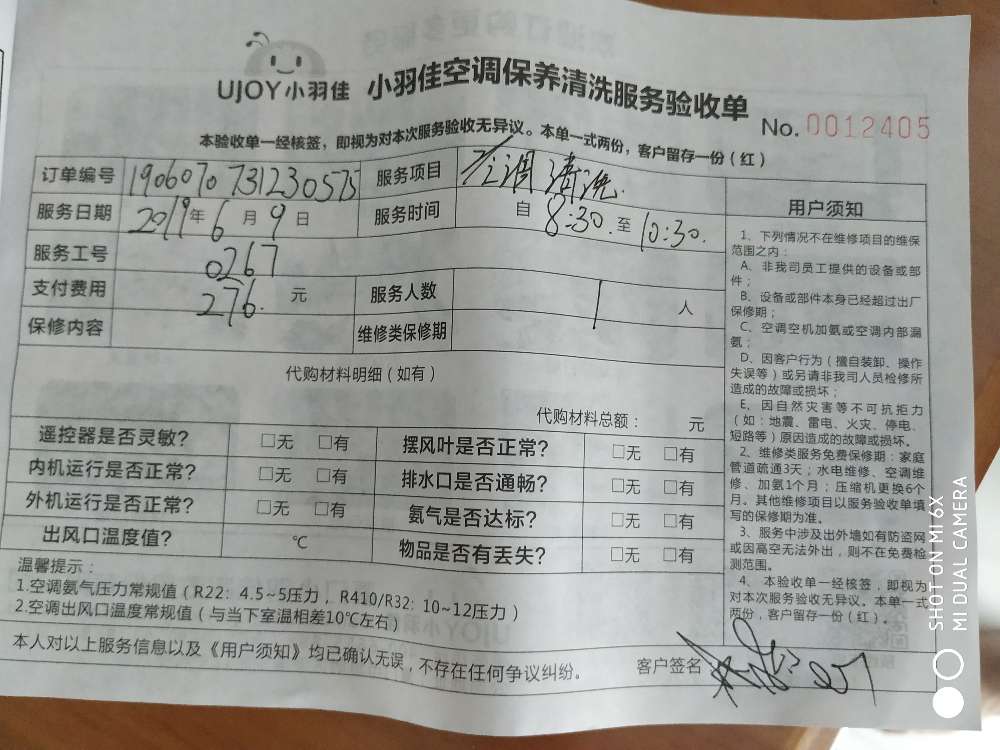 UJOY小羽佳 小羽佳空调保养清洗服务验收单
No. 0012405
本验收单一经核签，即视为对本次服务验收无异议。本单一式两份，客户留存一份（红）
订单编号 1906070731230575 服务项目 空调清洗
服务日期 2019年6月9日 服务时间 自8:30.至10:30.
服务工号 0267
支付费用 276. 元 服务人数 1 人
保修内容 维修类保修期
代购材料明细（如有）
代购材料总额： 元
遥控器是否灵敏？ □无 □有 摆风叶是否正常？ □无 □有
内机运行是否正常？ □无 □有 排水口是否通畅？ □无 □有
外机运行是否正常？ □无 □有 氨气是否达标？ □无 □有
出风口温度值？ ℃ 物品是否有丢失？ □无 □有
温馨提示：
1.空调氨气压力常规值（R22：4.5~5压力，R410/R32：10~12压力）
2.空调出风口温度常规值（与当下室温相差10℃左右）
本人对以上服务信息以及《用户须知》均已确认无误，不存在任何争议纠纷。
客户签名
用户须知
1、下列情况不在维修项目的维保
范围之内：
A、非我司员工提供的设备或部
件；
B、设备或部件本身已经超过出厂
保修期；
C、空调空机加氨或空调内部漏
氨；
D、因客户行为（擅自装卸、操作
失误等）或另请非我司人员检修所
造成的故障或损坏；
E、因自然灾害等不可抗拒力
（如：地震、雷电、火灾、停电、
短路等）原因造成的故障或损坏。
2、维修类服务免费保修期：家庭
管道疏通3天；水电维修、空调维
修、加氨1个月；压缩机更换6个
月。其他维修项目以服务验收单填
写的保修期为准。
3、服务中涉及出外墙如有防盗网
或因高空无法外出，则不在免费检
测范围。
4、本验收单一经核签，即视为
对本次服务验收无异议。本单一式
两份，客户留存一份（红）。
SHOT ON MI 6X
MI DUAL CAMERA